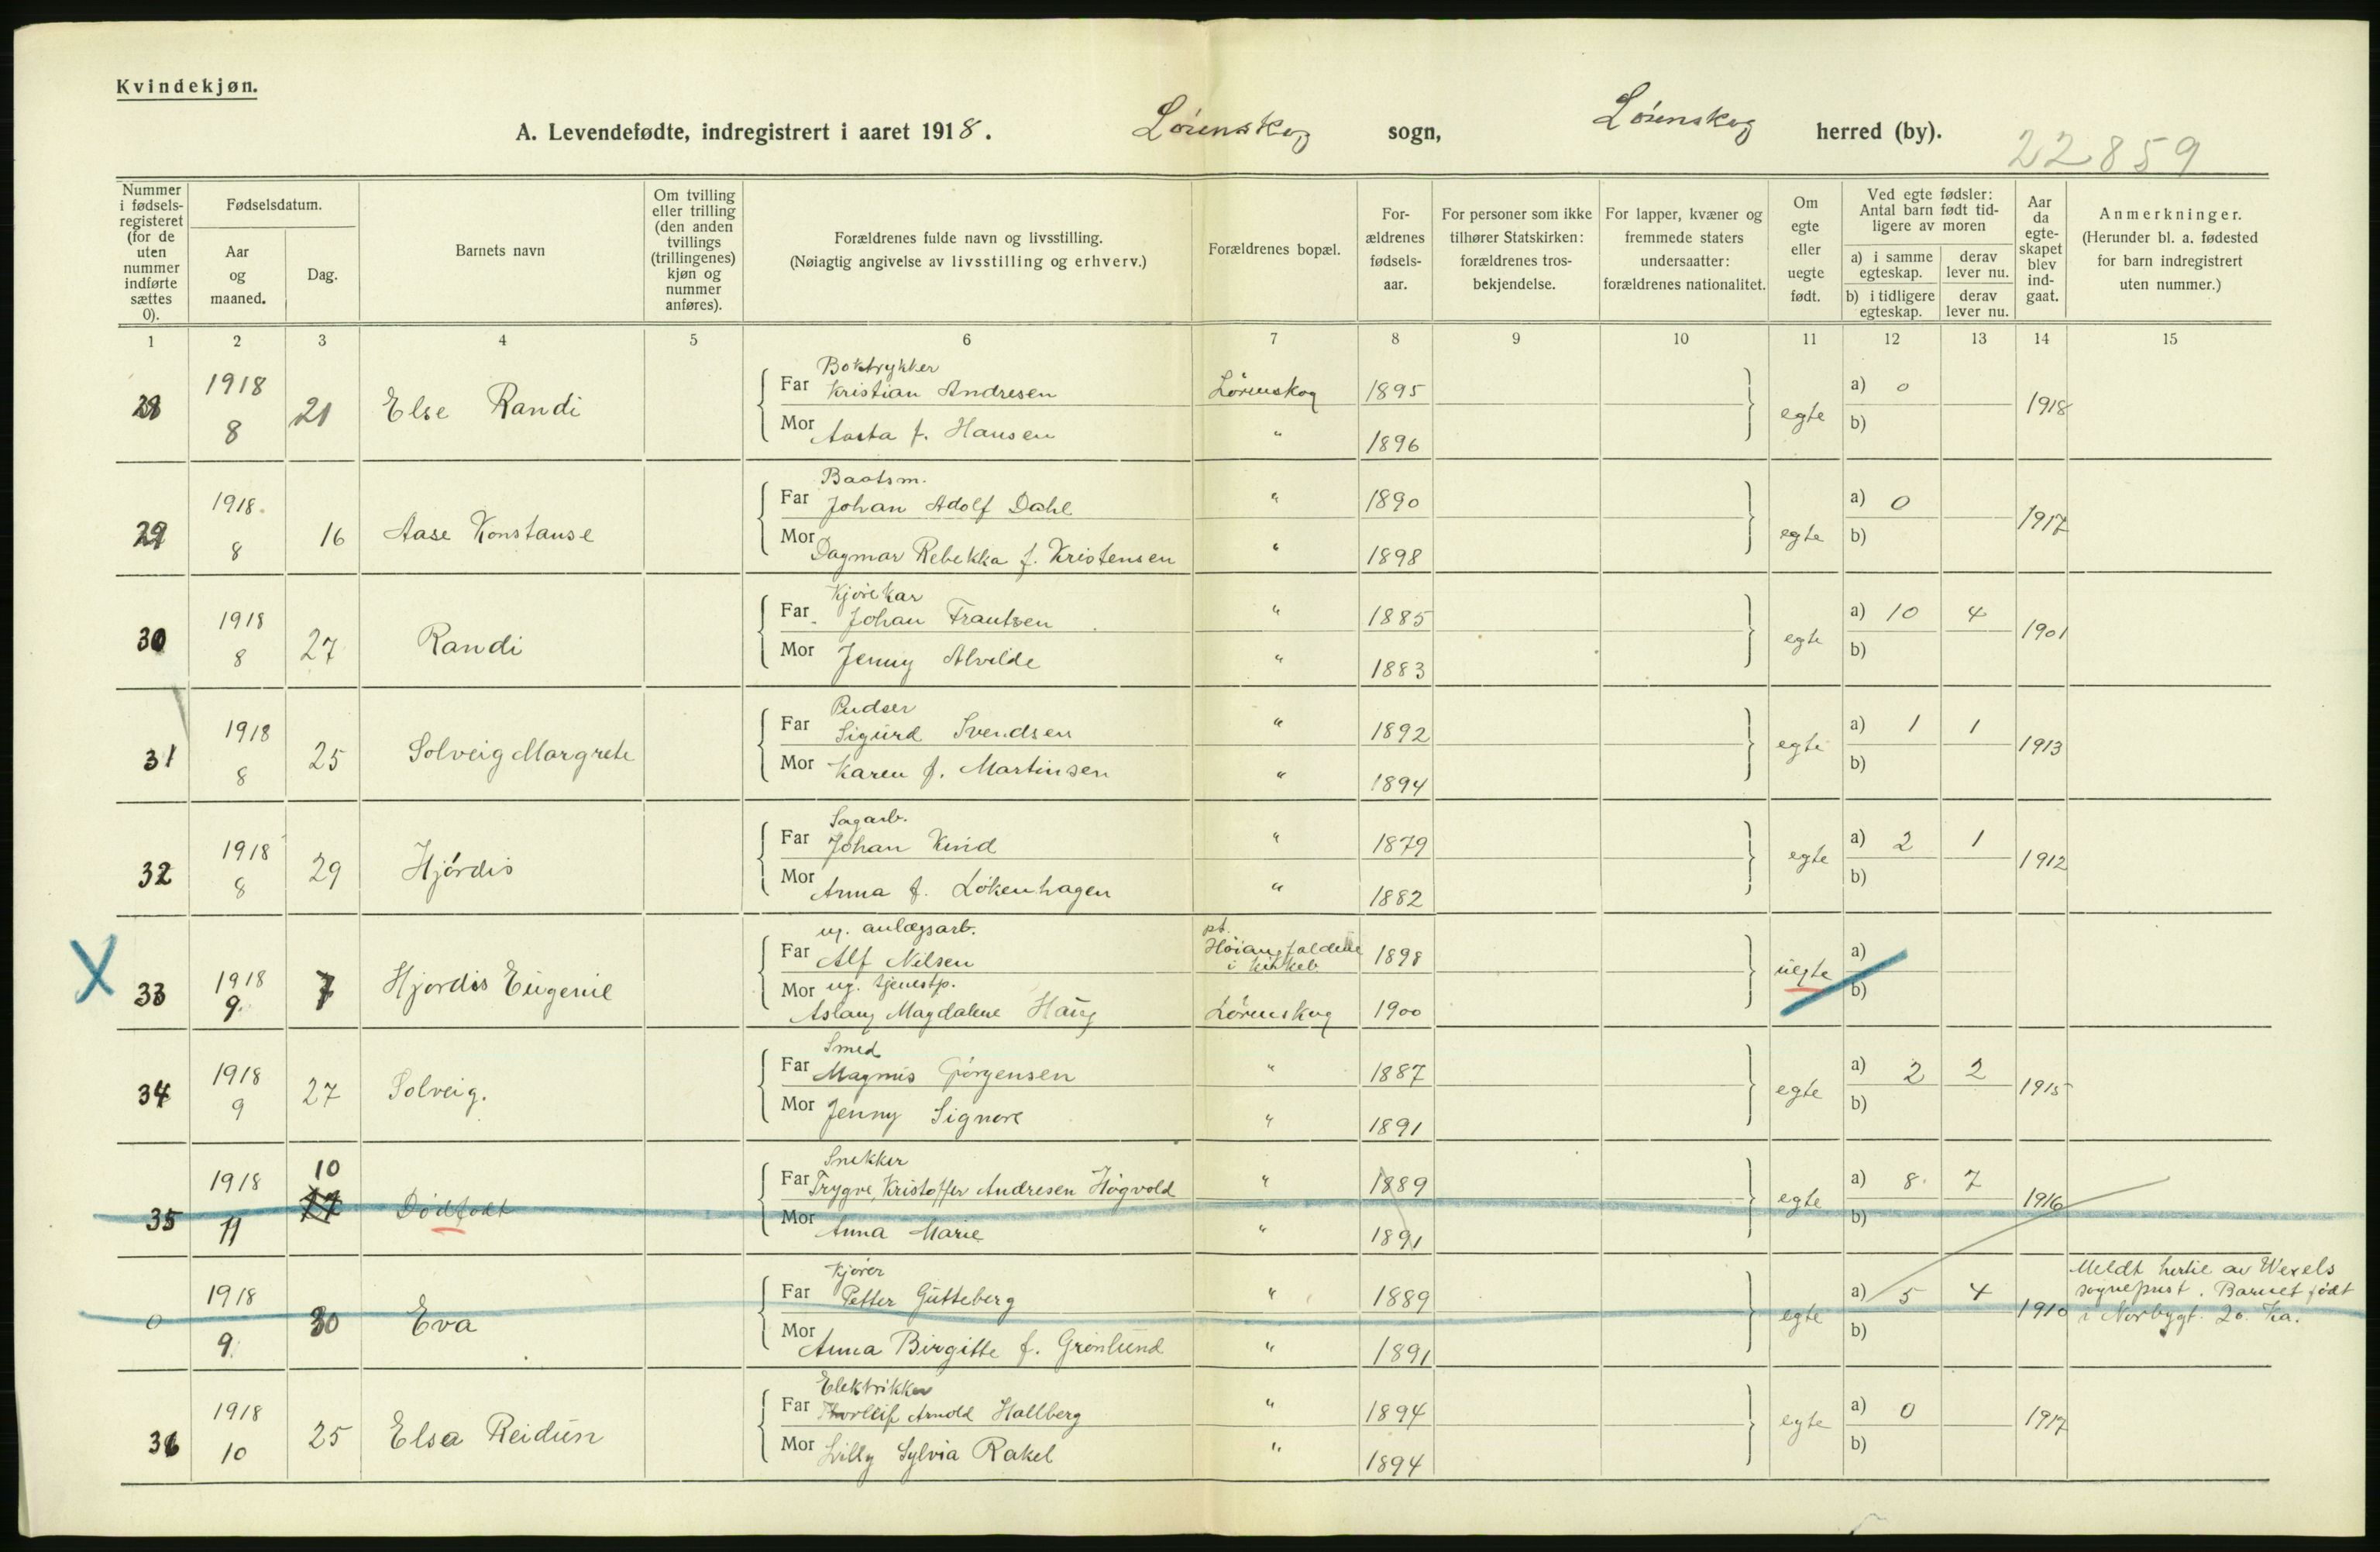 Kvindekjøn.
A. Levendefødte, indregistrert i aaret 1918. Lørenskog sogn, Lørenskog herred (by).
22859
Nummer i fødselsregisteret (for de uten nummer indførte sættes 0).
Fødselsdatum.
Aar og maaned.
Dag.
Barnets navn
Om tvilling eller trilling (den anden tvillings (trillingenes) kjøn og nummer anføres).
Forældrenes fulde navn og livsstilling.
(Nøiagtig angivelse av livsstilling og erhverv.)
Forældrenes bopæl.
For-ældrenes fødsels-aar.
For personer som ikke tilhører Statskirken: forældrenes tros-bekjendelse.
For lapper, kvæner og fremmede staters undersaatter: forældrenes nationalitet.
Om egte eller uegte født.
Ved egte fødsler: Antal barn født tid-ligere av moren
a) i samme egteskap. derav lever nu.
b) i tidligere egteskap. derav lever nu.
Aar da egte-skapet blev ind-gaat.
Anmerkninger.
(Herunder bl. a. fødested for barn indregistrert uten nummer.)
1 2 3 4 5 6 7 8 9 10 11 12 13 14 15
Boktrykker
28 1918 8 21 Else Randi Far Kristian Andresen Lørenskog 1895 egte a) 0 1918
Mor Aasta f. Hansen " 1896 b)
Baatsm.
29 1918. 8 16 Aase Konstanse Far Johan Adolf Dahl " 1890 egte a) 0 1917
Mor Dagmar Rebekka f. Kristensen " 1898 b)
Kjørekar
30 1918 8 27 Randi Far Johan Frantsen " 1885 egte a) 10 4 1901
Mor Jenny Alvilde " 1883 b)
Pudser
31 1918 8 25 Solveig Margrete Far Sigurd Svendsen " 1892 egte a) 1 1 1913
Mor Karen f. Martinsen " 1894 b)
Sagarb.
32 1918 8 29 Hjórdis Far Johan Kind " 1879 egte a) 2 1 1912
Mor Anna f. Lökenhagen " 1882 b)
ug. anlægsarb. pt.
X 33 1918 9. 7 Hjørdis Eugenie Far Alf Nilsen 1898 uegte a)
Mor ug. tjenestp.
Aslaug Magdalene Haug Lørenskog 1900 b)
Smed
34 1918 9 27 Solveig. Far Magnus Jörgensen " 1887 egte a) 2 2 1915
Mor Jenny Signore " 1891 b)
Snekker
35 1918 11 10 17 Dødfødt Far Trygve Kristoffer Andresen Högvold " 1889 egte a) 8 7 1916
Mor Anna Marie " 1891 b)
Kjører
0 1918 9. 30 Eva Far Petter Gutteberg " 1889 egte a) 5 4 1910
Mor Anna Birgitte f. Grønlund " 1891 b)
Meldt hertil av Wexels
sogneprest. Barnet født
i Norbygt. 20. Kra.
Elektrikker
36 1918 10 25 Elsa Reidun Far Thorleif Arnold Hallberg " 1894 egte a) 0 1917
Mor Lilly Sylvia Rakel " 1894 b)